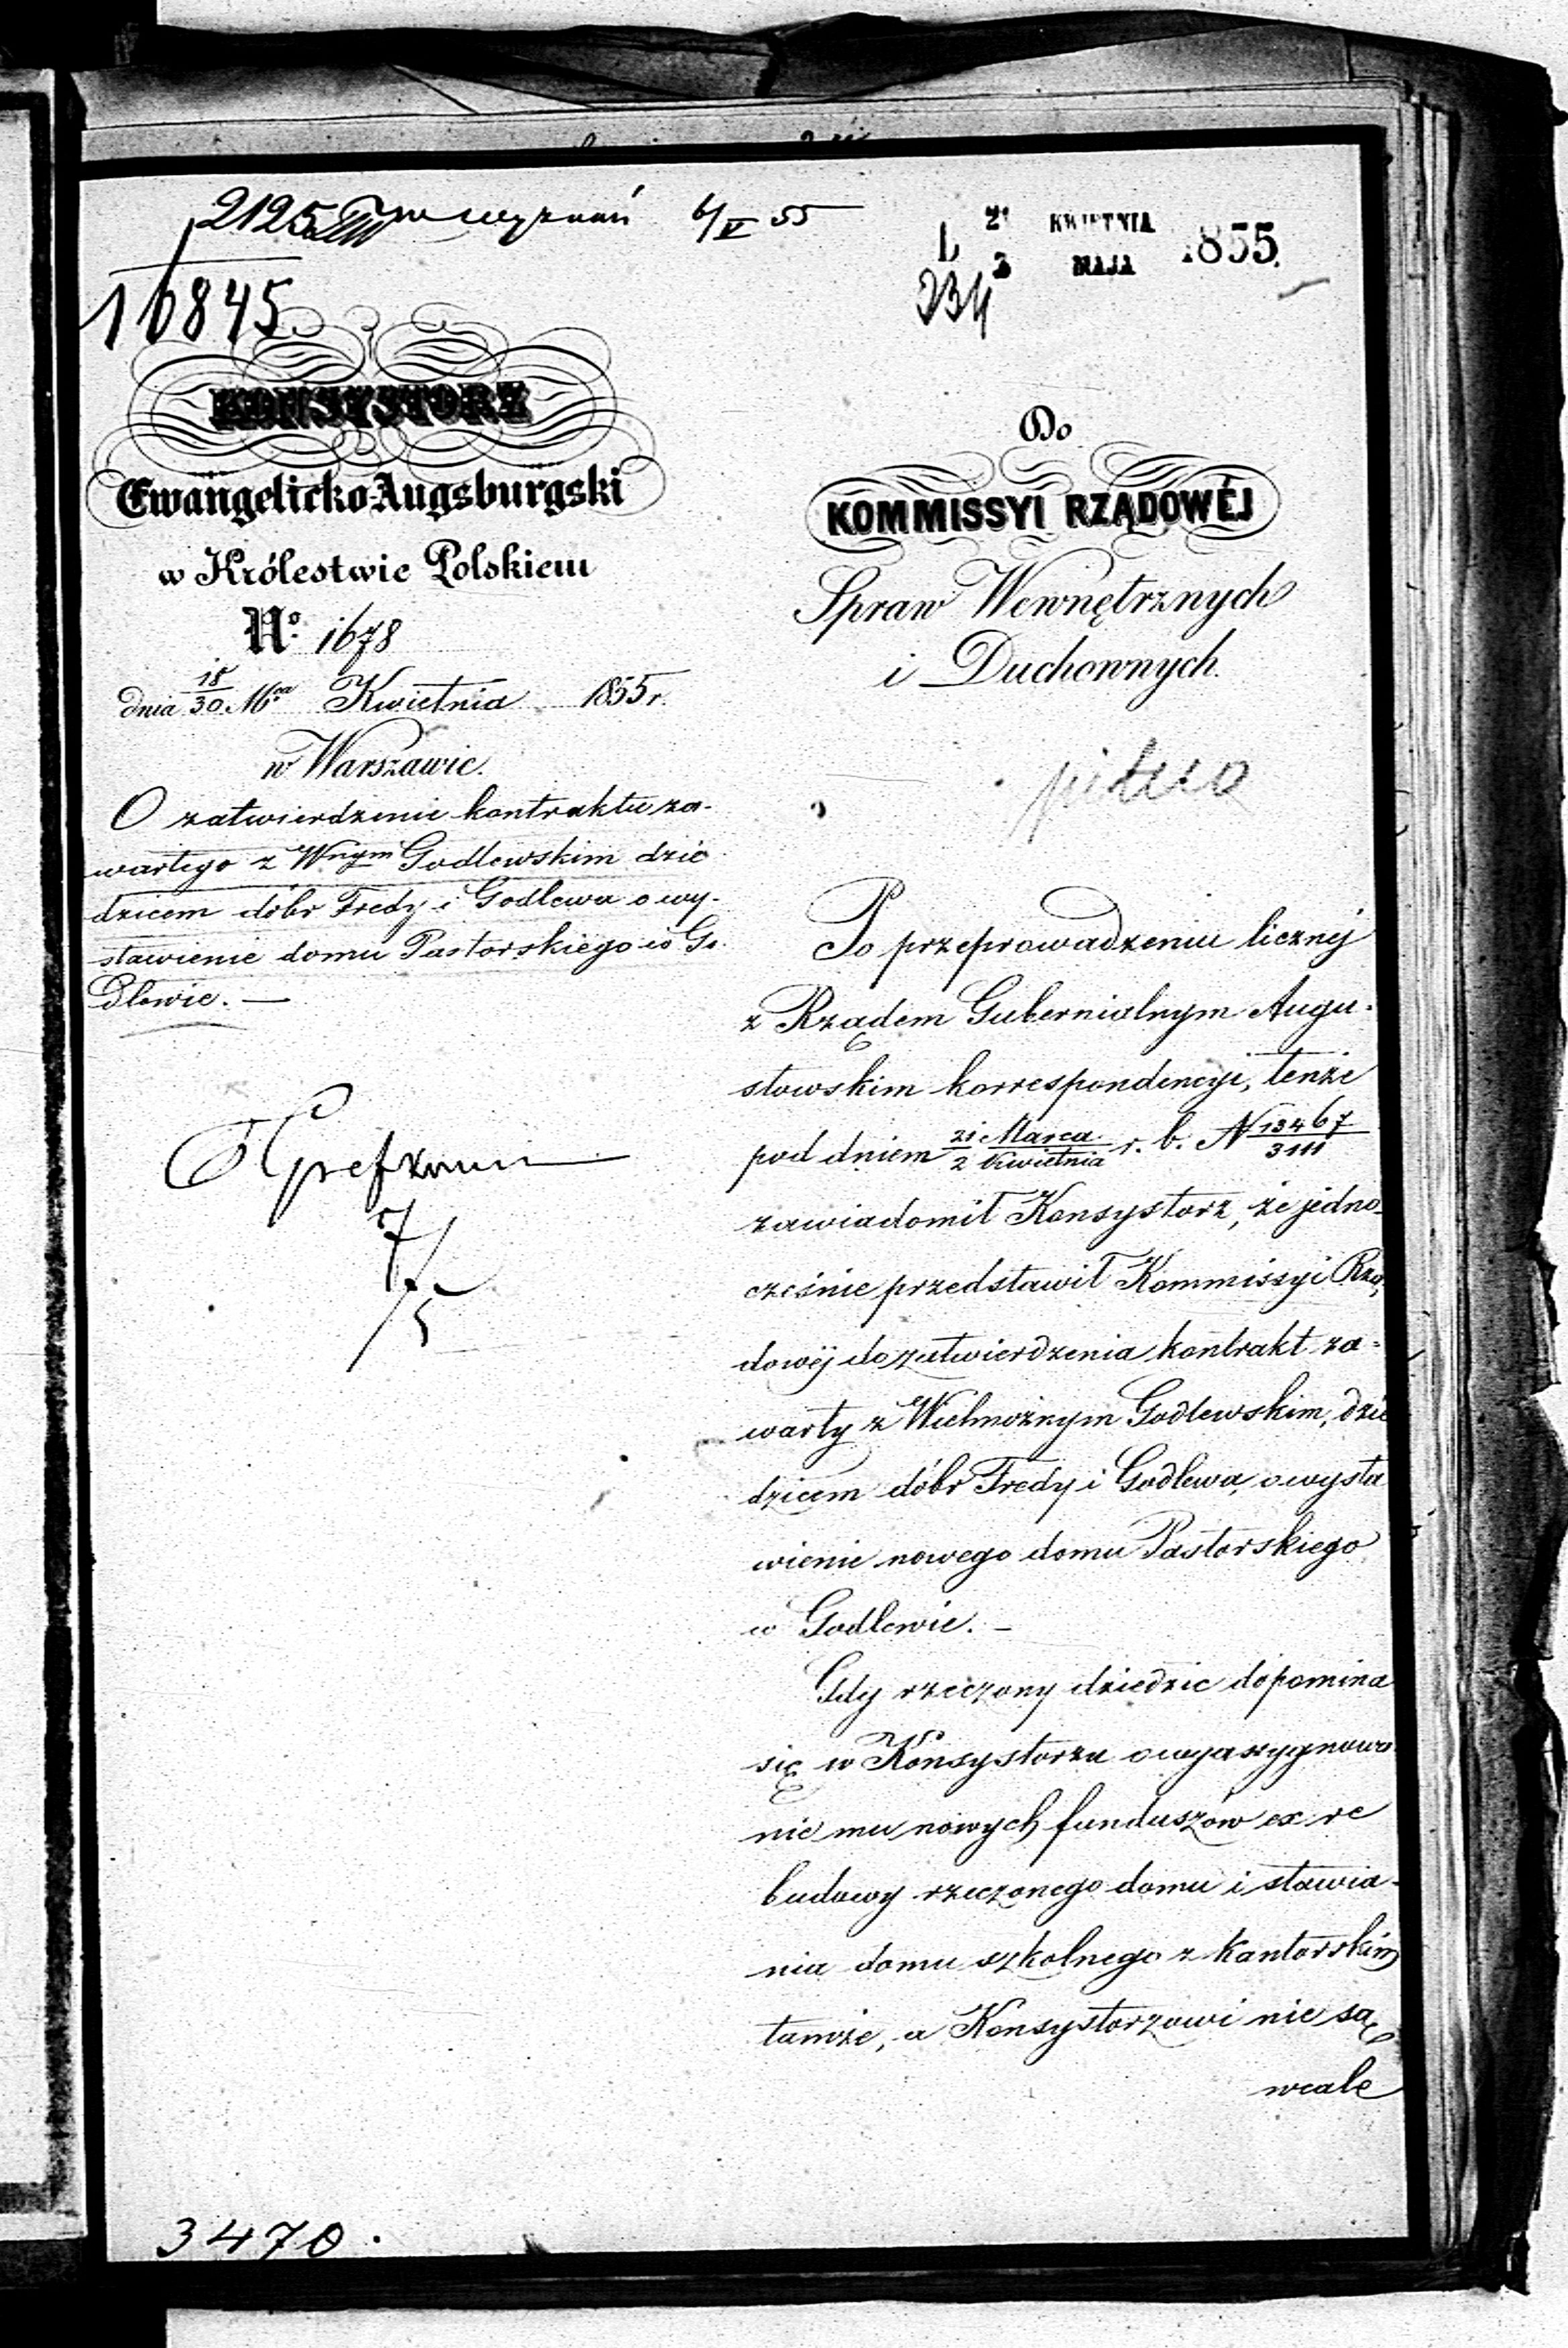 2125 wyznań 6/V 55
16845
L 21 KWIETNIA 1855.
3 MAJA
234
KONSYSTORZ
Ewangelicko-Augsburgski
w Królestwie Polskiem
No. 1678
dnia 18/30 Mca Kwietnia 1855 r.
w Warszawie.
O zatwierdzenie kontraktu za-
wartego z Wnym Godlewskim dzie
dzicem dóbr Fredy i Godlewa o wy-
stawienie domu Pastorskiego w Go
dlewie. —
7/5
Do
KOMMISSYI RZĄDOWÉJ
Spraw Wewnętrznych
i Duchownych.
pilno
Po przeprowadzeniu licznej
z Rządem Gubernialnym Augu-
stowskim korrespondencyi, tenże
pod dniem 21 Marca/2 Kwietnia r. b. N 13467/3111
zawiadomił Konsystorz, że jedno-
cześnie przedstawił Kommissyi Rzą-
dowéj do zatwierdzenia kontrakt za-
warty z Wielmożnym Godlewskim, dzie
dzicem dóbr Fredy i Godlewa, o wysta
wienie nowego domu Pastorskiego
w Godlewie. —
Gdy rzeczony dziedzic dopomina
się w Konsystorzu o wyasygnowa
nie mu nowych funduszów ex re
budowy rzeczonego domu i stawia-
nia domu szkolnego z kantorskim
tamże, a Konsystorzowi nie są
wcale
3470.